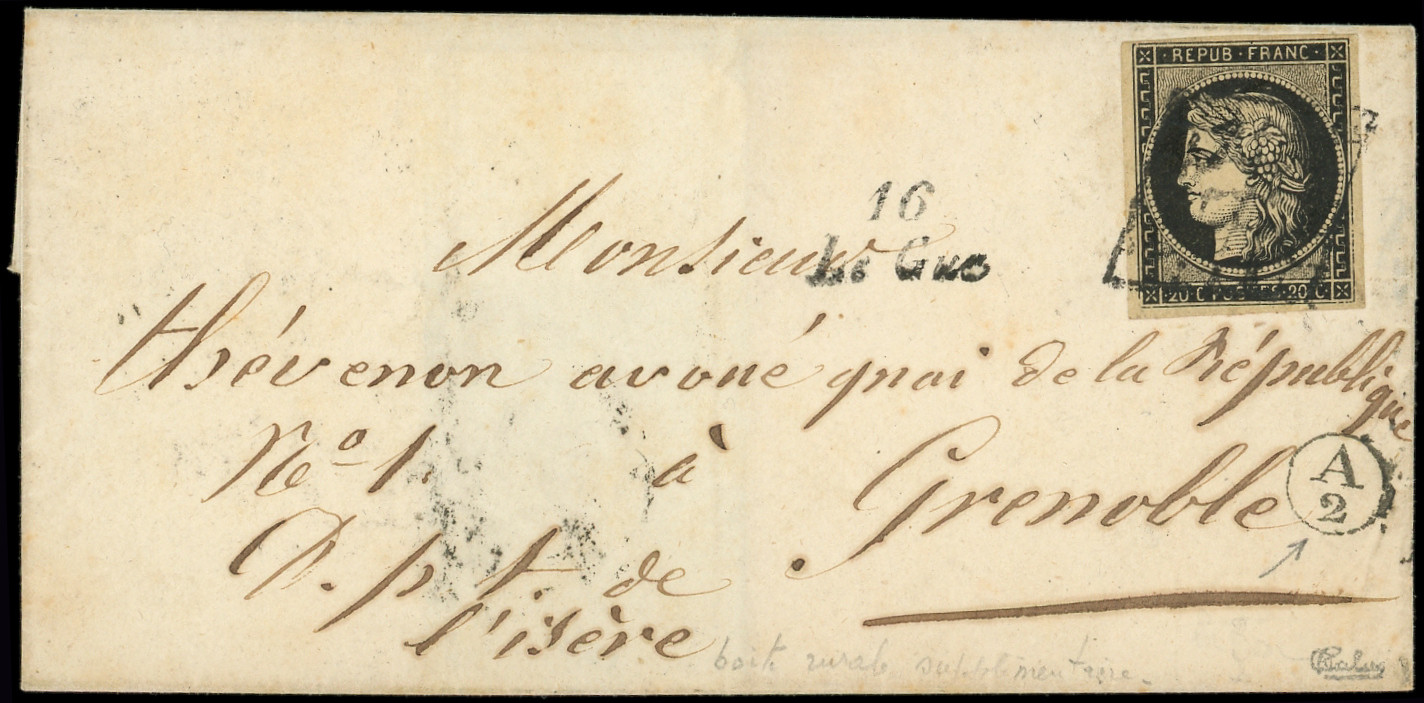 REPUB · FRANC ·
16
Le Gua
· 20 · C POSTES · 20 · C ·
Monsieur
thévenon avoué quai de la République
No 1. à Grenoble
A
2
D.p.t. de
l'isère
boite rurale supplémentaire.